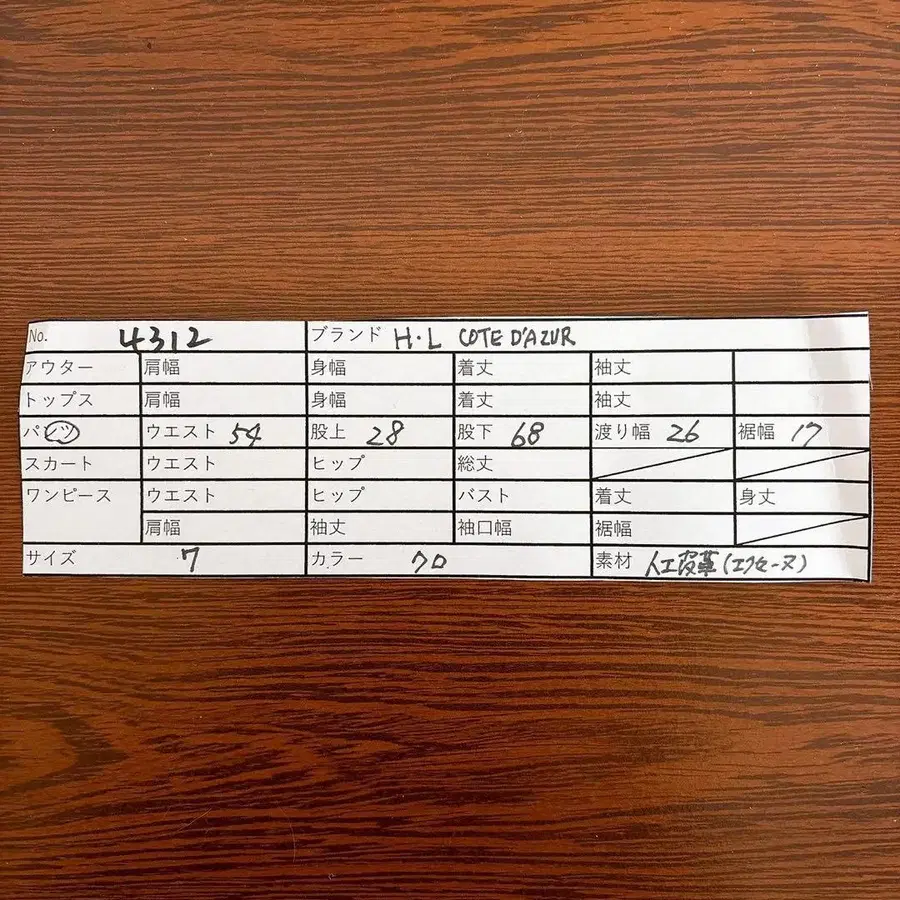 No. 4312 ブランド H・L COTE D'AZUR
アウター 肩幅 身幅 着丈 袖丈
トップス 肩幅 身幅 着丈 袖丈
パンツ ウエスト 54 股上 28 股下 68 渡り幅 26 裾幅 17
スカート ウエスト ヒップ 総丈
ワンピース ウエスト ヒップ バスト 着丈 身丈
肩幅 袖丈 袖口幅 裾幅
サイズ 7 カラー クロ 素材 人工皮革(エクセーヌ)